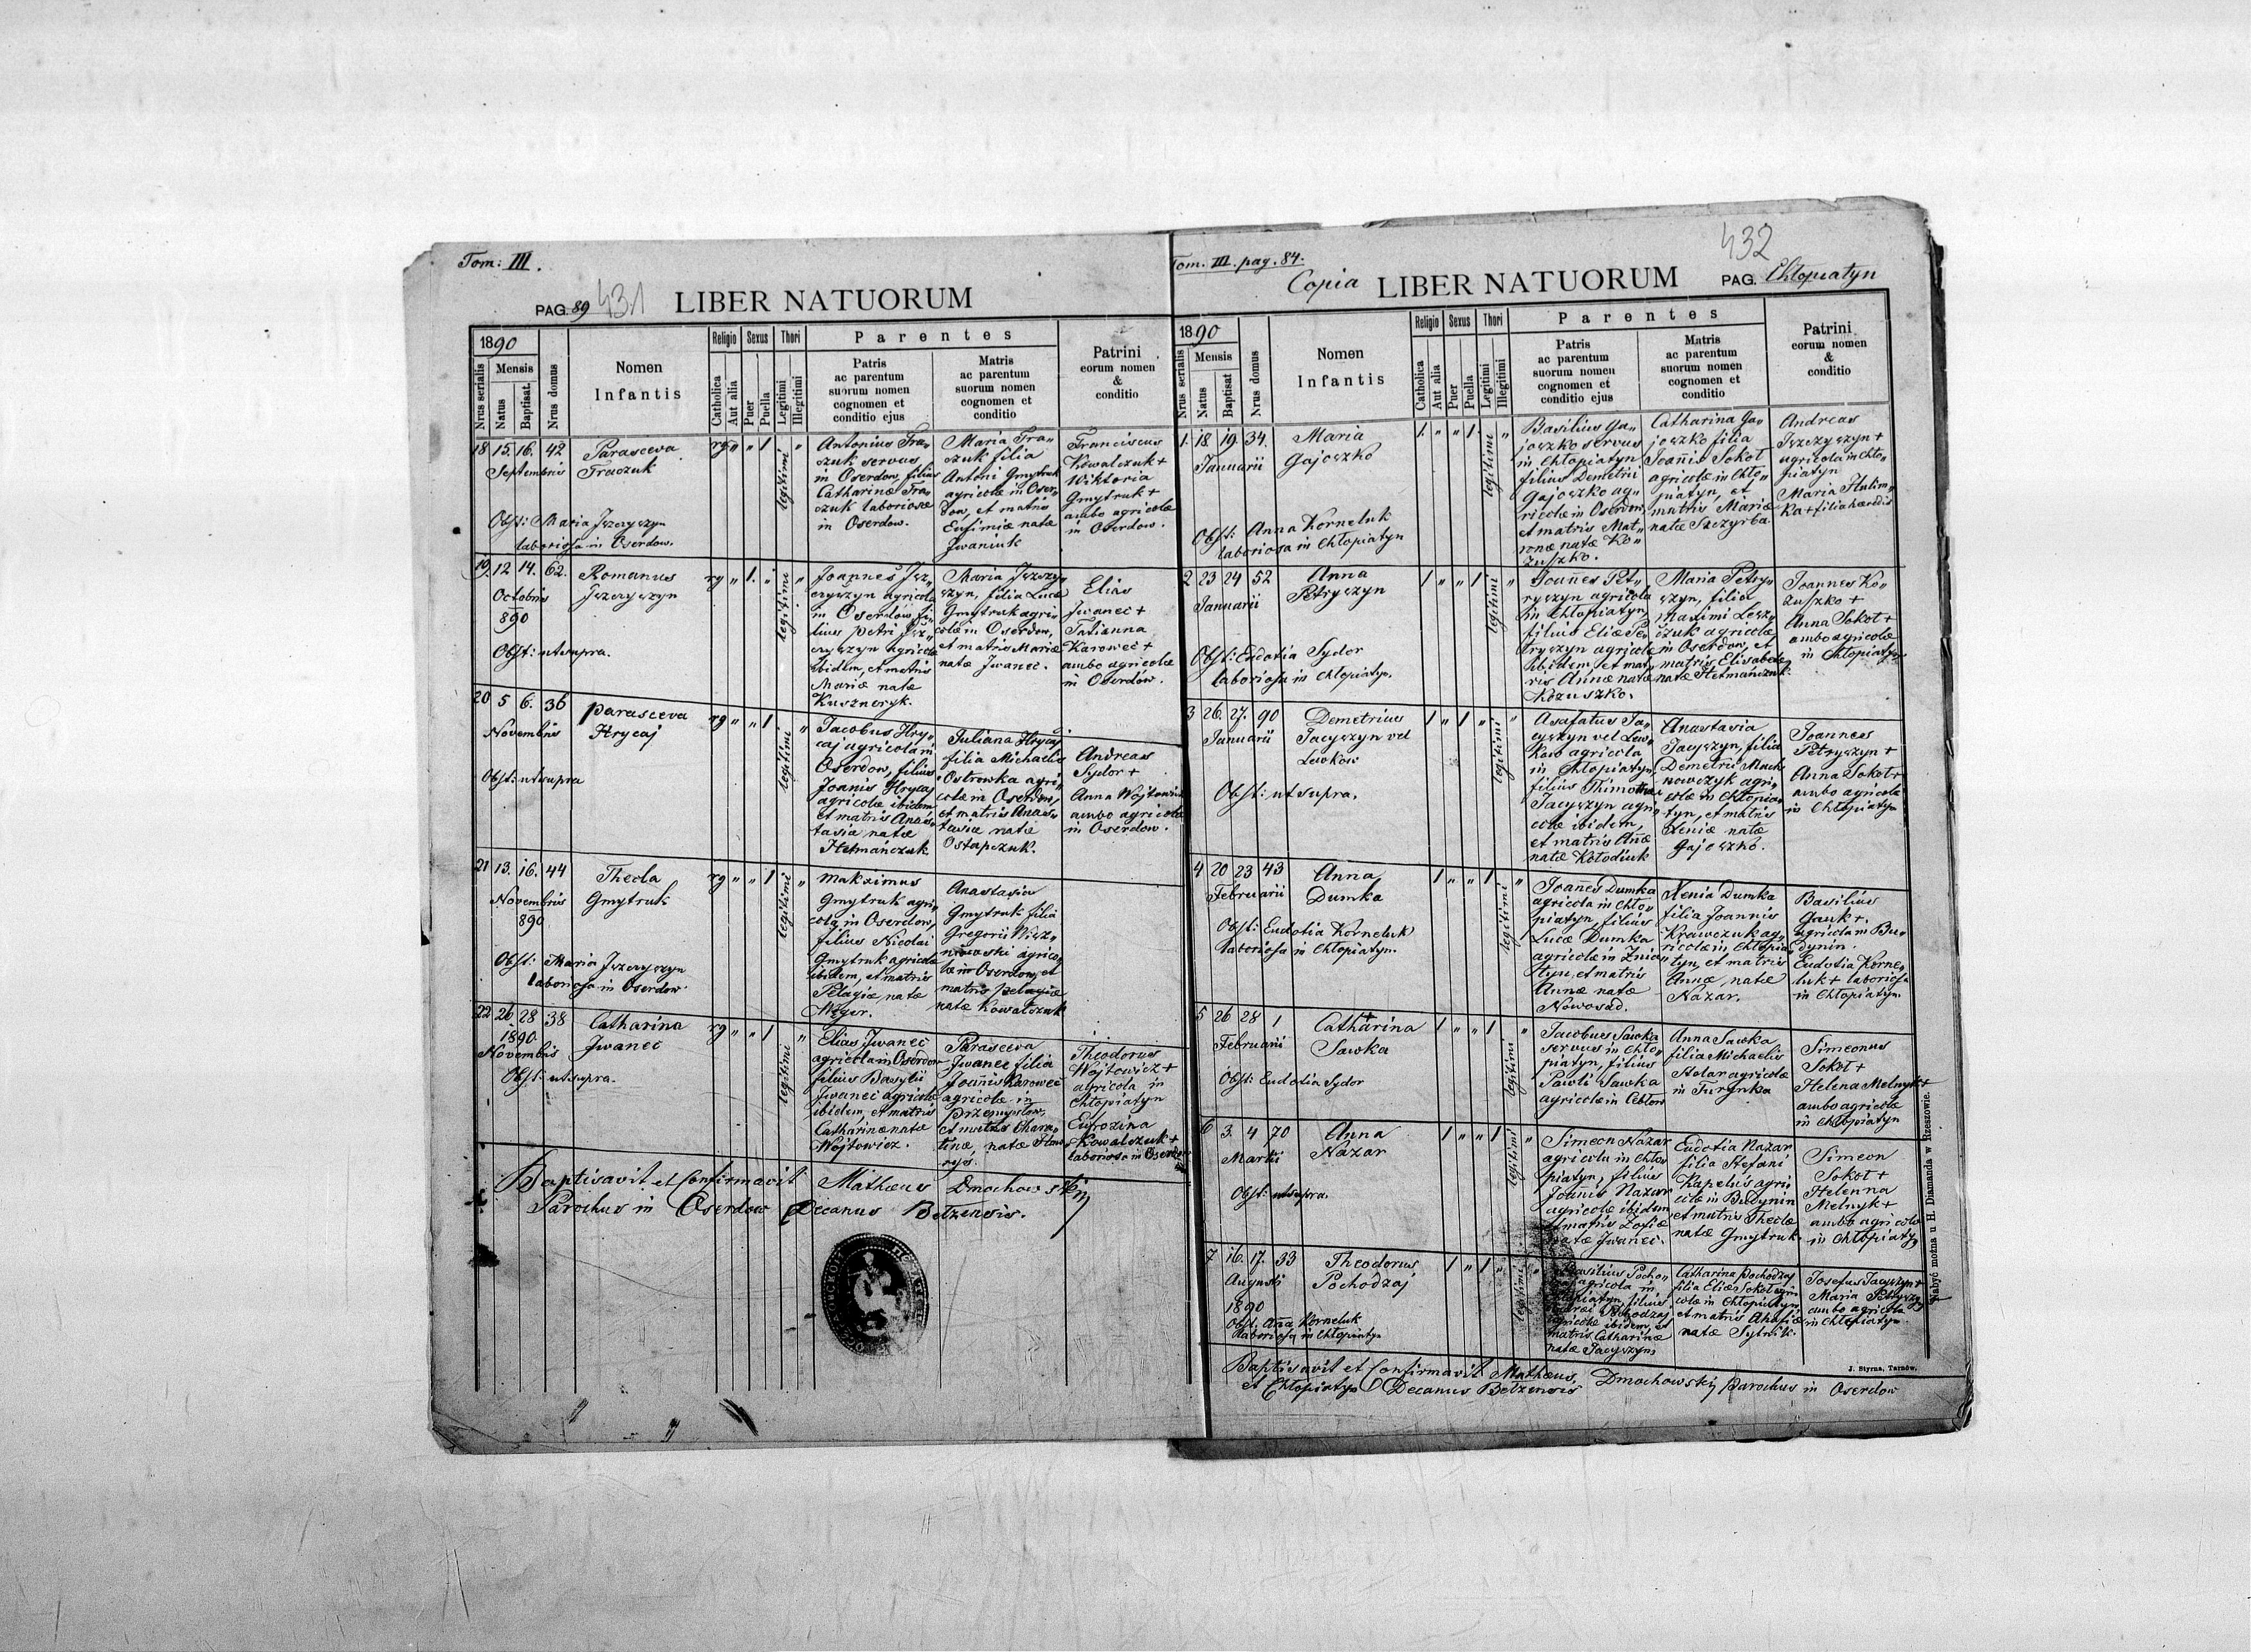 Tom: III.
PAG. 89 431 LIBER NATUORUM
1890
Nrus serialis
Mensis
Natus
Baptisat.
Nrus domus
Nomen
Infantis
Religio
Catholica
Aut alia
Sexus
Puer
Puella
Thori
Legitimi
Illegitimi
Parentes
Patris
ac parentum
suorum nomen
cognomen et
conditio ejus
Matris
ac parentum
suorum nomen
cognomen et
conditio
Patrini
eorum nomen
&
conditio
18 15. 16. 42 Parasceva
Septembris Traczuk
Obst: Maria Iszczyszyn
laboriosa in Oserdow.
rg " " 1 legitimi "
Antonius Tra„
czuk servus
in Oserdow, filius
Catharinæ Tra„
czuk laboriosæ
in Oserdow.
Maria Tra„
czuk filia
Antoni Gmytruk
agricolæ in Oser„
dow, et matris
Eufimiæ natæ
Iwaniuk
Franciscus
Kowalczuk +
Wiktoria
Gmytruk +
ambo agricolæ
in Oserdow.
19. 12 14. 62. Romanus
Octobris Iszczyszyn
890
Obst: ut supra.
rg " 1. " legitimi "
Joannes Isz„
czyszyn agricola
in Oserdów fi„
lius Petri Isz„
czyszyn agricolæ
ibidem, et matris
Mariæ natæ
Kuszneryk.
Maria Iszczy„
szyn, filia Lucæ
Gmytruk agri„
colæ in Oserdow,
et matris Mariæ
natæ Iwanec.
Elias
Iwanec +
Tatianna
Karowec +
ambo agricolæ
in Oserdów.
20 5 6. 36 Parasceva
Novembris Hrycaj
Obst: ut supra
rg " " 1 legitimi "
Jacobus Hry„
caj agricola in
Oserdow, filius
Joanis Hrycaj
agricolæ ibidem
et matris Anas„
tasia natæ
Hetmańczuk
Juliana Hrycaj
filia Michaelis
Ostrowka agri„
colæ in Oserdow,
et matris Anas„
tasiæ natæ
Ostapczuk.
Andreas
Sydor +
Anna Wojtowicz
ambo agricolæ
in Oserdow.
21 13. 16. 44 Thecla
Novembris Gmytruk
890
Obst: Maria Iszczyszyn
laboriosa in Oserdow
rg " " 1 legitimi "
Maksimus
Gmytruk agri„
cola in Oserdow,
filius Nicolai
Gmytruk agricolæ
ibidem, et matris
Pelagiæ natæ
Anastasia
Gmytruk filia
Gregorii Wisz„
niowski agrico„
læ in Oserdow, et
matris Pelagiæ
natæ Kowalczuk
22 26 28 38 Catharina
1890 Iwanec
Novembris
Obst: ut supra.
rg " " 1 legitimi "
Elias Iwanec
agricola in Oserdow
filius Basylii
Iwanec agricolæ
ibidem, et matris
Catharinæ natæ
Wojtowicz.
Parasceva
Iwanec filia
Joannis Karowec
agricolæ in
Przemysłow,
et matris Chara„
tinæ natæ
Theodorus
Wojtowicz +
agricola in
Chłopiatyn
Eufrozina
Kowalczuk +
laboriosa in Oserdow
Baptisavit et Confirmavit Mathæus Dmochowskij
Parochus in Oserdow Decanus Bełzensis.
Tom. III. pag. 84. 432
Copia LIBER NATUORUM PAG. Chłopiatyn
1890
Nrus serialis
Mensis
Natus
Baptisat
Nrus domus
Nomen
Infantis
Religio
Catholica
Aut alia
Sexus
Puer
Puella
Thori
Legitimi
Illegitimi
Parentes
Patris
ac parentum
suorum nomen
cognomen et
conditio ejus
Matris
ac parentum
suorum nomen
cognomen et
conditio
Patrini
eorum nomen
&
conditio
1. 18. 19. 34. Maria
Januarii Gajoszko
Obst: Anna Korneluk
laboriosa in Chłopiatyn
1. " " 1. legitimi "
Basilius Ga„
joszko servus
in Chłopiatyn
filius Demetrii
Gajoszko ag„
ricolæ in Oserdow,
et matris Mat„
ronæ natæ Ko„
żuszko.
Catharina Ga„
joszko filia
Joannis Sokoł
agricolæ in Chło„
piatyn, et
matris Mariæ
natæ Szczyrba
Andreas
Iszczyszyn +
agricola in Chło„
piatyn
Maria Hulim„
ka + filia hæredis
2 23 24 52 Anna
Januarii Petryszyn
Obst: Eudotia Sydor
laboriosa in Chłopiatyn.
1 " " 1 legitimi "
Joannes Pet„
ryszyn agricola
in Chłopiatyn,
filius Eliæ Pe„
tryszyn agricolæ
ibidem, et mat„
ris Annæ natæ
Kozuszko.
Maria Petry„
szyn, filia
Maximi Lesz„
czuk agricolæ,
in Oserdow, et
matris Elisabetæ
natæ Hetmańczuk.
Joannes Ko„
żuszko +
Anna Sokoł +
ambo agricolæ
in Chłopiatyn
3 26. 27. 90 Demetrius
Januarii Jacyszyn vel
Lewkow
Obst: ut supra.
1 " 1 " legitimi "
Asafatus Ja„
cyszyn vel Lew„
kow agricola
in Chłopiatyn,
filius Thimothei
Jacyszyn agri„
colæ ibidem,
et matris Annæ
natæ Kołodiuk
Anastasia
Jacyszyn, filia
Demetrii Mach„
nowczyk agri„
colæ in Chłopia„
tyn, et matris
Xeniæ natæ
Gajoszko.
Joannes
Petryszyn +
Anna Sokoł +
ambo agricolæ
in Chłopiatyn
4 20 23 43 Anna
Februarii Dumka
Obst: Eudotia Korneluk
laboriosa in Chłopiatyn.
1 " " 1 legitimi "
Joannes Dumka
agricola in Chło„
piatyn, filius
Lucæ Dumka
agricolæ in Żnia„
tyn, et matris
Annæ natæ
Nowosad.
Xenia Dumka
filia Joannis
Krawczuk ag„
ricolæ in Chłopia„
tyn, et matris
Annæ, natæ
Nazar.
Basilius
Gauk +.
agricola in Bu„
dynin.
Eudotia Korne„
luk + laboriosa
in Chłopiatyn.
5 26 28 1 Catharina
Februarii Sawka
Obst: Eudotia Sydor
1 " " 1 legitimi "
Jacobus Sawka
servus in Chło„
piatyn, filius
Pawli Sawka
agricolæ in Cebłow
Anna Sawka
filia Michaelis
Stolar agricolæ
in Turynka
Simeonus
Sokoł +
Helena Melnyk +
ambo agricolæ
in Chłopiatyn
6 3. 4 70 Anna
Martii Nazar
Obst: ut supra.
1 " " 1 legitimi "
Simeon Nazar
agricola in Chło„
piatyn, filius
Joannis Nazar
agricolæ ibidem
et matris Zofiæ
natæ Iwanec.
Eudotia Nazar
filia Stefani
Kapelus agri„
colæ in Budynin
et matris Theclæ
natæ Gmytruk
Simeon
Sokoł +
Helenna
Melnyk +
ambo agricolæ
in Chłopiatyn
7 16. 17. 33 Theodorus
Augusti Pochodzaj
1890
Obst: Anna Korneluk
laboriosa in Chłopiatyn
1 " 1 " legitimi "
Basilius Pocho„
agricola in
Chłopiatyn, filius
Pochodzaj
agricolæ ibidem, et
matris Catharinæ
natæ Jacyszyn
Catharina Pochodzaj
filia Eliæ Sokoł agri„
colæ in Chłopiatyn,
et matris Ahafiæ
natæ Sytnik.
Josefus Jacyszyn +
Maria Petryszyn
ambo agricolæ
in Chłopiatyn.
Baptisavit et Confirmavit Mathæus Dmochowskij Parochus in Oserdow
et Chłopiatyn Decanus Bełzensis
J. Styrna, Tarnów.
Nabyć można u H. Diamanda w Rzeszowie.